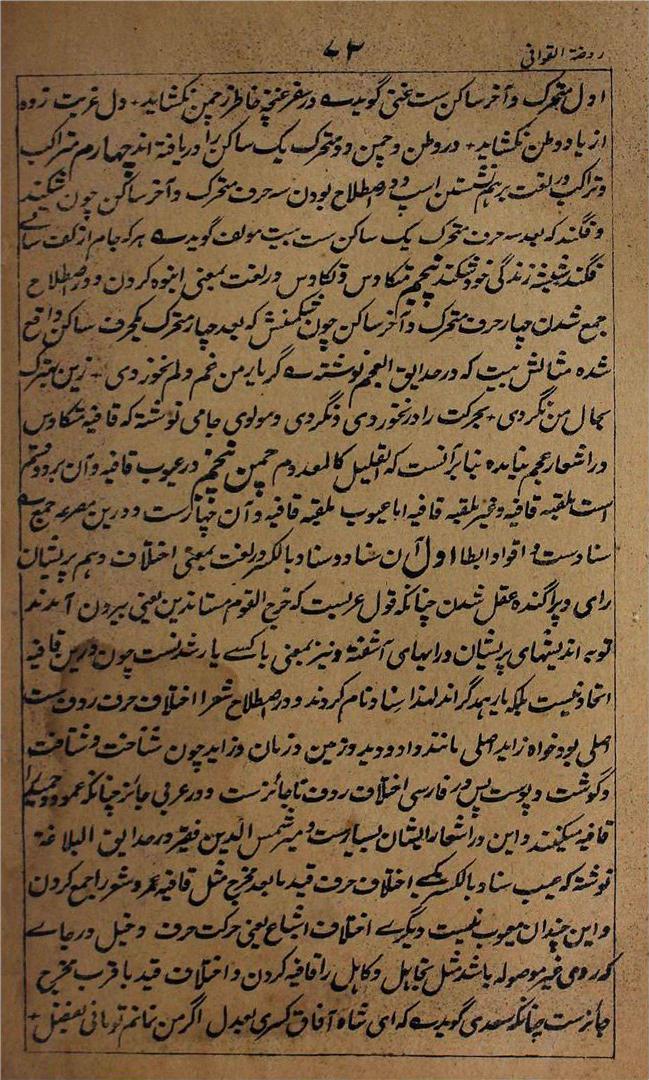 روضة القوافی ۷۳
اول متحرک و آخر ساکن ست غنی گوید در سفر غنچهٔ خاطر ز چمن نکشاید + دل غربت زده
از یاد وطن نکشاید + در وطن و چمن دو متحرک یک ساکن را دریافته اند چهارم متراکب
و تراکب در لغت برهم نشستن است و در اصطلاح بودن سه حرف متحرک و آخر ساکن چون شکند
و فکند که بعد سه حرف متحرک یک ساکن ست بیت مولف گوید هر که جام از کف ساقی
فکند شیشهٔ زندگی خود شکند پنجم متکاوس و تکاوس در لغت بمعنی انبوه کردن و در اصطلاح
جمع شدن چهار حرف متحرک و آخر ساکن چون شکمنش که بعد چهار متحرک یکحرف ساکن واقع
شده مثالش بیت که در حدایق العجم نوشته گر یار من غم دلم نخوردی + زین بهترک
بحال من نگردی + بحرکت را در نخوردی و نگردی و مولوی جامی نوشته که قافیه متکاوس
در اشعار عجم نیامده بنابر آنست که القلیل کالمعدوم چمن پنجم در عیوب قافیه و آن بر دو قسم
است ملقبه قافیه و غیر ملقبه قافیه اما عیوب ملقبه قافیه و آن چهارست و درین مصرعه جمع
سنادست و اقوا و ایطا اول آن سناد و سناد بالکسر در لغت بمعنی اختلاف و هم پریشان
رای و پراگنده عقل شدن چنانکه قول عربست که خرج القوم متساندین یعنی بیرون آمدند
قوم به اندیشهای پریشان و رایهای آشفته و نیز بمعنی با کسے یار شدنست چون درین قافیه
اتحاد نیست بلکه یار یکدگراند لهذا سناد نام کردند و در اصطلاح شعرا اختلاف حرف ردف ست
اصلی بود خواه زاید اصلی مانند داد و دید و زمین و زمان و زاید چون شناخت و شتافت
و گوشت و پوست پس در فارسی اختلاف ردف ناجائز ست و در عربی جائز چنانکه عمود و حمید را
قافیه میکنند و این در اشعار ایشان بسیار ست و میر شمس الدین فقیر در حدایق البلاغة
نوشته که عیب سناد بالکسر یکے اختلاف حرف قید ما بعد مخرج مثل قافیه عمر و شعر را جمع کردن
و این چندان معیوب نیست دیگرے اختلاف اشباع یعنی حرکت حرف دخیل در جاے
که روی غیر موصوله باشد مثل تجاهل و کاهل را قافیه کردن و اختلاف قید با قرب مخرج
جائز ست چنانکه سعدی گوید که ای شاه آفاق کسری بعدل اگر من نمانم تو مانی بفضل +